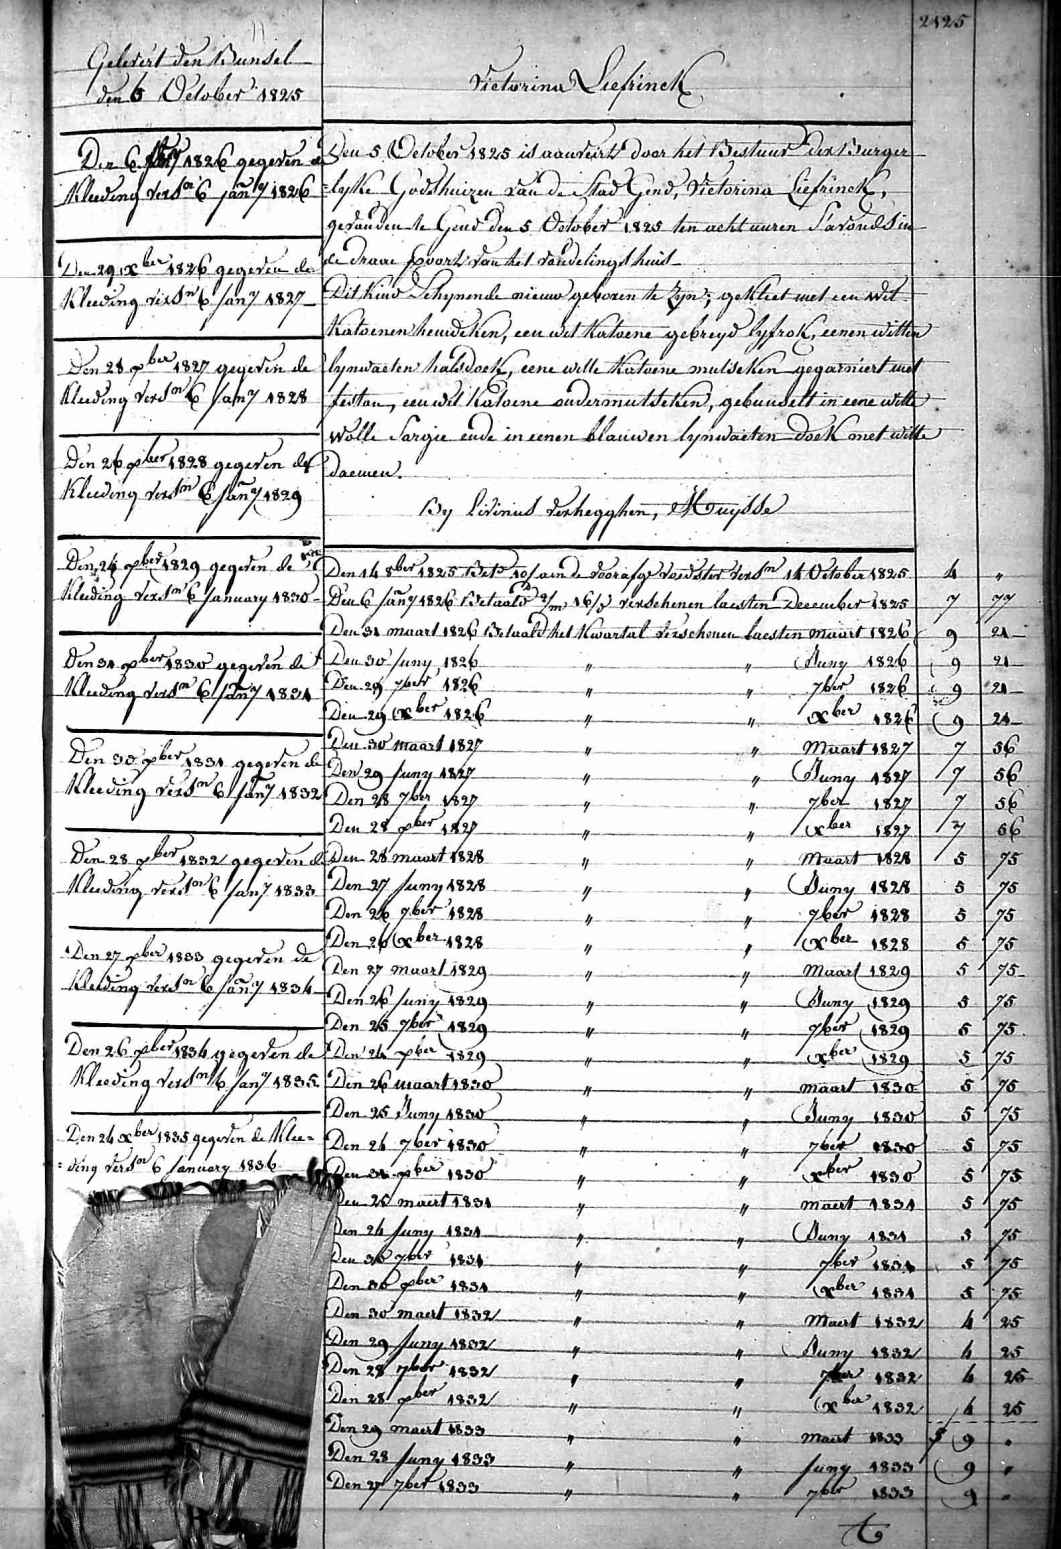 2125
Gelevert den Bunsel
den 6 October 1825
Den 6 Jany 1826 gegeven de
Kleeding versn 6 Jany 1826
Den 29 xber 1826 gegeven de
Kleeding versn 6 Jany 1827
Den 28 xber 1827 gegeven de
Kleeding versn 6 Jany 1828
Den 26 xber 1828 gegeven de
Kleeding versn 6 Jany 1829
Den 24 xber 1829 gegeven de
Kleeding versn 6 January 1830
Den 31 xber 1830 gegeven de
Kleeding versn 6 Jany 1831
Den 30 xber 1831 gegeven de
Kleeding versn 6 Jany 1832
Den 28 xber 1832 gegeven de
Kleeding versn 6 Jany 1833
Den 27 xber 1833 gegeven de
Kleeding versn 6 Jany 1834
Den 26 xber 1834 gegeven de
Kleeding versn 6 Jany 1835
Den 24 xber 1835 gegeven de Klee=
=ding versn 6 January 1836
Victorina Liefrinck
Den 5 October 1825 is aanveirt door het Bestuur der Burger
=lyke Godshuizen van de Stad Gend, Victorina Liefrinck,
gevonden te Gend den 5 October 1825 ten acht uuren s'avonds in
de draae poort van het vondelingshuis
Dit Kind Schynende nieuw geboren te zyn, gekleet met een wit
Katoenen hemdeken, een wit Katoene gebreyd lyfrok, eenen witten
lynwaeten halsdoek, eene witte Katoene mutseken gegarniert met
festan, een wit Katoene ondermutseken, gebunselt in eene witte
wolle Sargie ende in eenen blauwen lynwaeten doek met witte
daemen.
By Livinus Verhegghen, Muysse
Den 14 8ber 1825 Betd 10/ aen de voorafge voedster versn 14 October 1825 4 "
Den 6 Jany 1826 Betaald 2/m 16/d verschenen laesten December 1825 7 77
Den 31 maart 1826 Betaald het Kwartal verschenen laesten maart 1826 9 21
Den 30 Juny 1826 " " Juny 1826 9 21
Den 29 7ber 1826 " " 7ber 1826 9 21
Den 29 xber 1826 " " xber 1826 9 21
Den 30 maart 1827 " " Maart 1827 7 56
Den 29 Juny 1827 " " Juny 1827 7 56
Den 28 7ber 1827 " " 7ber 1827 7 56
Den 28 xber 1827 " " xber 1827 7 56
Den 28 maart 1828 " " Maart 1828 5 75
Den 27 Juny 1828 " " Juny 1828 5 75
Den 26 7ber 1828 " " 7ber 1828 5 75
Den 26 xber 1828 " " xber 1828 5 75
Den 27 maart 1829 " " Maart 1829 5 75
Den 26 Juny 1829 " " Juny 1829 5 75
Den 25 7ber 1829 " " 7ber 1829 5 75
Den 24 xber 1829 " " xber 1829 5 75
Den 26 maart 1830 " " maart 1830 5 75
Den 25 Juny 1830 " " Juny 1830 5 75
Den 24 7ber 1830 " " 7ber 1830 5 75
Den 31 xber 1830 " " xber 1830 5 75
Den 25 maert 1831 " " maert 1831 5 75
Den 24 Juny 1831 " " Juny 1831 5 75
Den 30 7ber 1831 " " 7ber 1831 5 75
Den 30 xber 1831 " " xber 1831 5 75
Den 30 maert 1832 " " Maert 1832 4 25
Den 29 Juny 1832 " " Juny 1832 4 25
Den 28 7ber 1832 " " 7ber 1832 4 25
Den 28 xber 1832 " " xber 1832 4 25
Den 29 maert 1833 " " maert 1833 f 9 "
Den 28 Juny 1833 " " Juny 1833 9 "
Den 27 7ber 1833 " " 7ber 1833 9 "